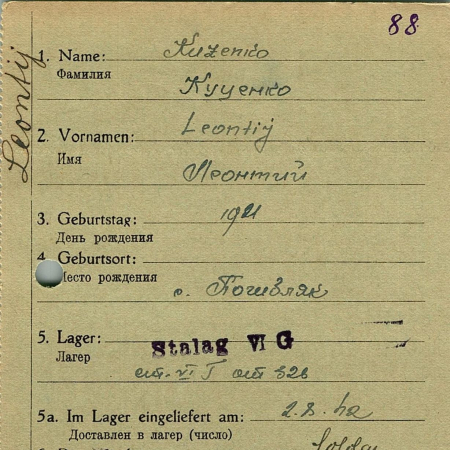 88
Leontij
1. Name: Kuzenko
Фамилия
Куценко
2. Vornamen: Leontij
Имя
Леонтий
3. Geburtstag: 1921
День рождения
4. Geburtsort:
Место рождения
с.
5. Lager: Stalag VI G
Лагер
326
5a. Im Lager eingeliefert am: 2.8.42
Доставлен в лагер (число)